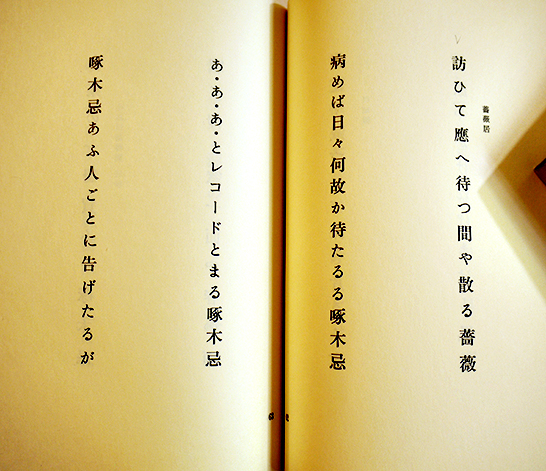 薔薇居
訪ひて應へ待つ間や散る薔薇
病めば日々何故か待たるる啄木忌
あ・あ・あ・とレコードとまる啄木忌
啄木忌あふ人ごとに告げたるが